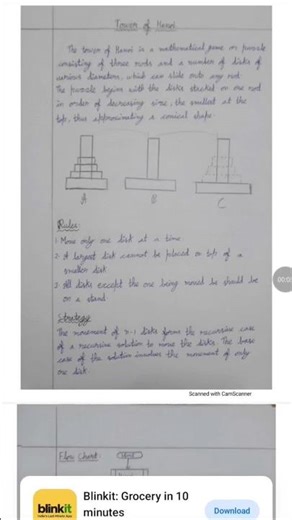 Tower of Hanoi
The tower of Hanoi is a mathematical game or puzzle
consisting of three rods and a number of disks of
various diameters, which can slide onto any rod.
The puzzle begins with the disks stacked on one rod
in order of decreasing size, the smallest at the
top, thus approximating a conical shape.
A B C
Rules:
1- Move only one disk at a time.
2- A largest disk cannot be placed on top of a
smaller disk
3- All disks except the one being moved be should be
on a stand.
Strategy
The movement of n-1 disks forms the recursive case
of a recursive solution to move the disks. The base
case of the solution involves the movement of only
one disk.
Scanned with CamScanner
Flow Chart:
blinkit
Blinkit: Grocery in 10
minutes
Download